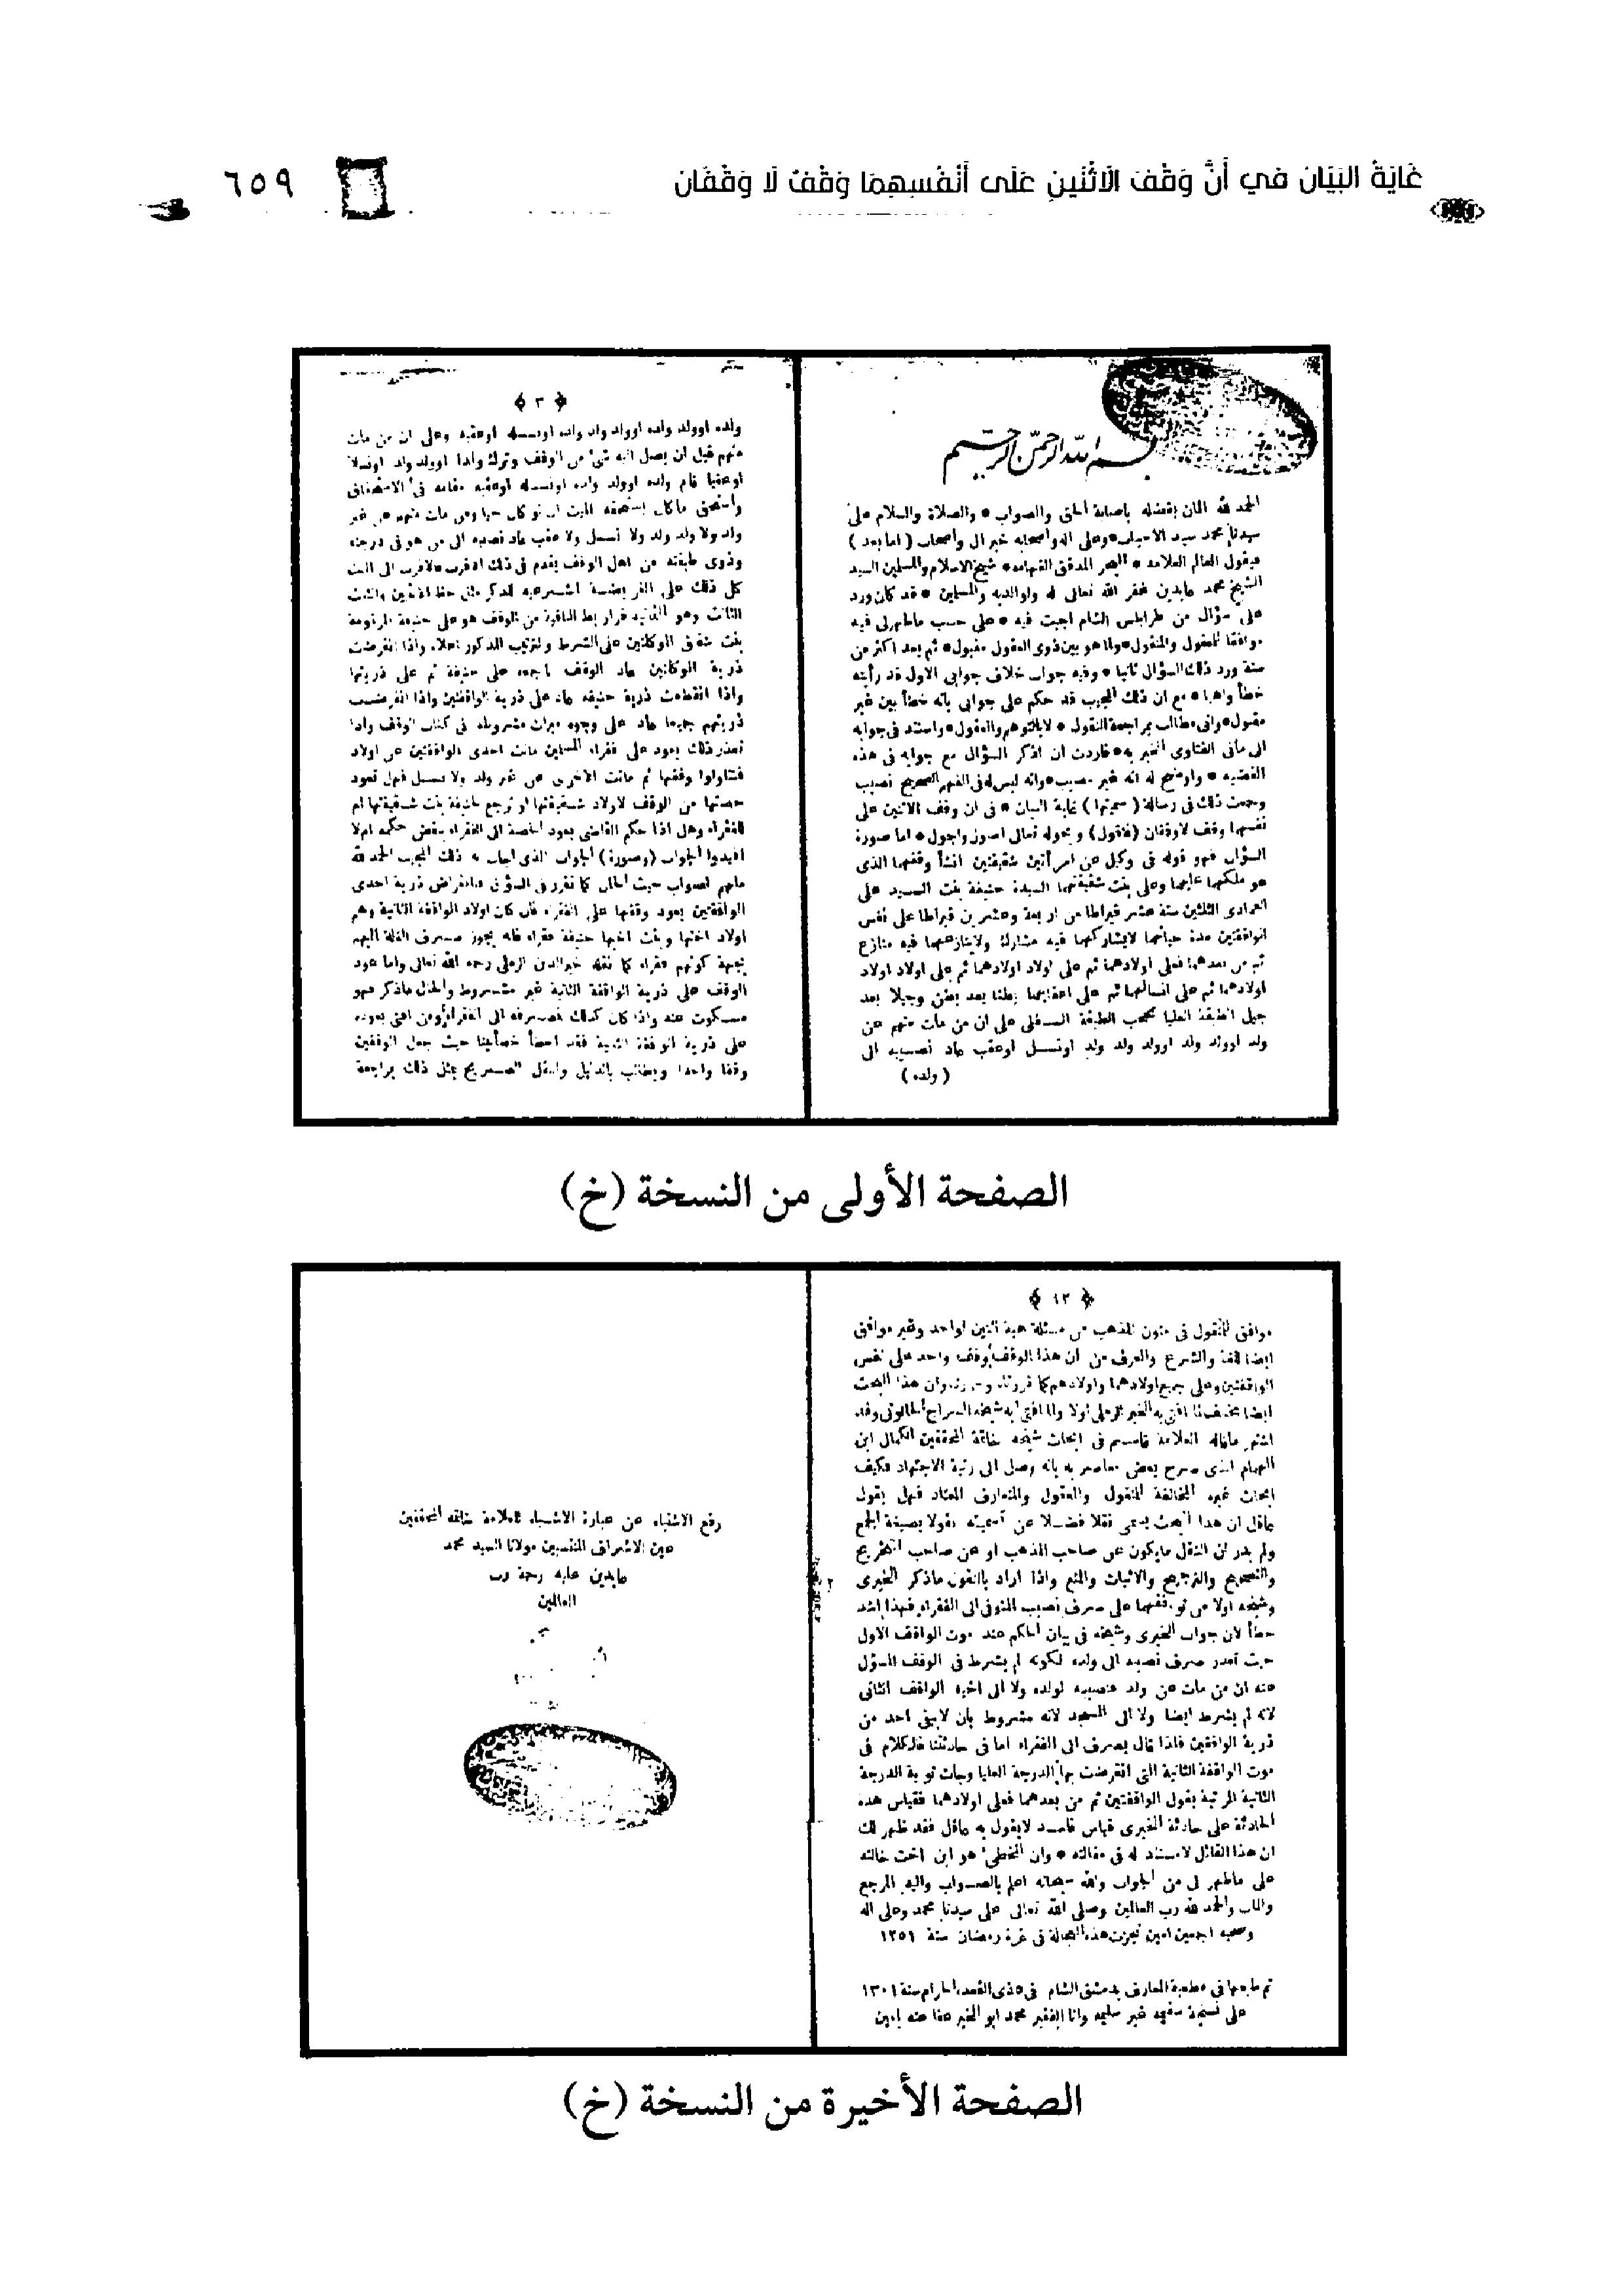 غَايَةُ البَيَانِ فِي أَنَّ وَقْفَ الاثْنَينِ عَلَى أَنْفُسِهِمَا وَقْفٌ لَا وَقْفَان
٦٥٩
بسم الله الرحمن الرحيم
الحمد لله المان بفضله باصابة الحق والصواب * والصلاة والسلام على
سيدنا محمد سيد الاحباب * وعلى اله واصحابه خير ال واصحاب ( اما بعد )
فيقول العالم العلامه * البحر المدقق الفهامه * شيخ الاسلام والمسلمين السيد
الشيخ محمد عابدين غفر الله تعالى له ولوالديه والمسلمين * قد كان ورد
على سؤال من طرابلس الشام اجبت فيه * على حسب ماظهرلى فيه
موافقا للمعقول والمنقول * ولما هو بين ذوى العقول مقبول * ثم بعد اكثر من
سنة ورد ذلك السؤال ثانيا * وفيه جواب خلاف جوابى الاول قد رأيته
خطأ واهيا * مع ان ذلك المجيب قد حكم على جوابى بانه خطأ بين غير
مقبول * وانى مطالب بمراجعة النقول * واستند فى جوابه
الى مافى الفتاوى الخيريه * فاردت ان اذكر السؤال مع جوابه فى هذه
القضيه * واوضح له انه غير مصيب * وانه ليس له فى الفهم الصحيح نصيب
وجمعت ذلك فى رسالة ( سميتها ) غاية البيان * فى ان وقف الاثنين على
نفسهما وقف لاوقفان ( فاقول ) وبحوله تعالى اصول واجول * اما صورة
السؤال فهو قوله فى وكيل عن امرأتين شقيقتين انشأ وقفهما الذى
هو ملكهما عليهما وعلى بنت شقيقتهما السيدة حنيفة بنت السيد على
المرادى الثلثين ستة عشر قيراطا من اربعة وعشرين قيراطا على نفس
الواقفتين مدة حياتهما لايشاركهما فيه مشارك ولاينازعهما فيه منازع
ثم من بعدهما فعلى اولادهما ثم على اولاد اولادهما ثم على اولاد اولاد
اولادهما ثم على انسالهما ثم على اعقابهما بطنا بعد بطن وجيلا بعد
جيل الطبقة العليا تحجب الطبقة السفلى على ان من مات منهم عن
ولد اوولد ولد اوولد ولد ولد اونسل اوعقب عاد نصيبه الى
( ولده )
﴿ ٣ ﴾
ولده اوولد ولده اوولد ولد ولده اونسله اوعقبه وعلى ان من مات
منهم قبل ان يصل اليه شئ من الوقف وترك ولدا اوولد ولد اونسلا
اوعقبا قام ولده اوولد ولده اونسله اوعقبه مقامه فى الاستحقاق
واستحق ماكان يستحقه الميت ان لو كان حيا ومن مات منهم عن غير
ولد ولا ولد ولد ولا نسل ولا عقب عاد نصيبه الى من هو فى درجته
وذوى طبقته من اهل الوقف يقدم فى ذلك الاقرب فالاقرب الى الميت
كل ذلك على الفريضة الشرعيه للذكر مثل حظ الانثيين والثلث
الثالث وهو الثمانية قراريط الباقية من الوقف هو على حنيفة المرقومة
بنت شقيق الموكلتين على الشرط والترتيب المذكور اعلاه واذا انقرضت
ذرية الموكلتين عاد الوقف باجمعه على حنيفة ثم على ذريتها
واذا انقطعت ذرية حنيفه عاد على ذرية الواقفتين واذا انقرضت
ذريتهم جميعا عاد على وجوه مبرات مشروطه فى كتاب الوقف واذا
تعذر ذلك يعود على فقراء المسلمين ماتت احدى الواقفتين عن اولاد
فتناولوا وقفها ثم ماتت الاخرى عن غير ولد ولا نسل فهل تعود
حصتها من الوقف لاولاد شقيقتها او ترجع لحنيفة بنت شقيقتها ام
للفقراء وهل اذا حكم القاضى بعود الحصة الى الفقراء ينقض حكمه ام لا
افيدوا الجواب ( وصورة ) الجواب الذى اجاب به ذلك المجيب الحمد لله
ملهم الصواب حيث الحال كما تقرر فى السؤال فبانقراض ذرية احدى
الواقفتين يعود وقفها على الفقراء فان كان اولاد الواقفة الثانية وهم
اولاد اختها وبنت اخيها حنيفة فقراء فانه يجوز صرف الغلة اليهم
بجهة كونهم فقراء كما نقله خيرالدين الرملى رحمه الله تعالى واما عود
الوقف على ذرية الواقفة الثانية غير مشروط والحال ماذكر فهو
مسكوت عنه واذا كان كذلك فصرفه الى الفقراء ومن افتى بعوده
على ذرية الواقفة الثانية فقد اخطأ خطأ بينا حيث جعل الوقفين
وقفا واحدا ويطالب بالدليل والنقل الصريح بمثل ذلك بمراجعة
الصفحة الأولى من النسخة (خ)
﴿ ١٣ ﴾
موافق للمنقول فى متون المذهب من مسئلة هبة اثنين لواحد وغير موافق
ايضا للغة والشرع والعرف من ان هذا الوقف وقف واحد على نفس
الواقفتين وعلى جميع اولادهما واولادهم كما قررناه وان هذا البحث
ايضا مخالف لما افتى به الخير الرملى اولا ولما افتى به شيخه السراج الحانوتى وقد
اشتهر ماقاله العلامة قاسم فى ابحاث شيخه خاتمة المحققين الكمال ابن
الهمام الذى صرح بعض معاصريه بانه وصل الى رتبة الاجتهاد فكيف
ابحاث غيره المخالفة للمنقول والمعقول والمتعارف المعتاد فهل يقول
عاقل ان هذا البحث يسمى نقلا فضلا عن تسميته نقولا بصيغة الجمع
ولم يدر ان النقل مايكون عن صاحب المذهب او عن صاحب التخريج
والتصحيح والترجيح والاثبات والمنع واذا اراد بالنقول ماذكر الخيرى
وشيخه اولا من توقفهما على صرف نصيب المتوفى الى الفقراء فهذا اشد
خطأ لان جواب الخيرى وشيخه فى بيان الحكم عند موت الواقف الاول
حيث تعذر صرف نصيبه الى ولده لكونه لم يشرط فى الوقف المسؤل
عنه ان من مات عن ولد فنصيبه لولده ولا الى اخيه الواقف الثانى
لانه لم يشرط ايضا ولا الى المسجد لانه مشروط بان لايبقى احد من
ذرية الواقفين فلذا قال يصرف الى الفقراء اما فى حادثتنا فالكلام فى
موت الواقفة الثانية التى انقرضت بها الدرجة العليا وجاءت نوبة الدرجة
الثانية المرتبة بقول الواقفتين ثم من بعدهما فعلى اولادهما فقياس هذه
الحادثة على حادثة الخيرى قياس فاسد لايقول به عاقل فقد ظهر لك
ان هذا القائل لامستند له فى مقالته * وان المخطئ هو ابن اخت خالته
على ماظهر لى من الجواب والله سبحانه اعلم بالصواب واليه المرجع
والمآب والحمد لله رب العالمين وصلى الله تعالى على سيدنا محمد وعلى اله
وصحبه اجمعين امين نجزت هذه العجالة فى غرة رمضان سنة ١٢٥١
تم طبعها فى مطبعة المعارف بدمشق الشام فى ذى القعدة الحرام سنة ١٣٠١
على نسخة سقيمه غير سليمه وانا الفقير محمد ابو الخير عفا عنه
رفع الاشتباه عن عبارة الاشباه للعلامة خاتمه المحققين
عين الاشراف المنتسبين مولانا السيد محمد
عابدين عليه رحمة رب
العالمين
الصفحة الأخيرة من النسخة (خ)